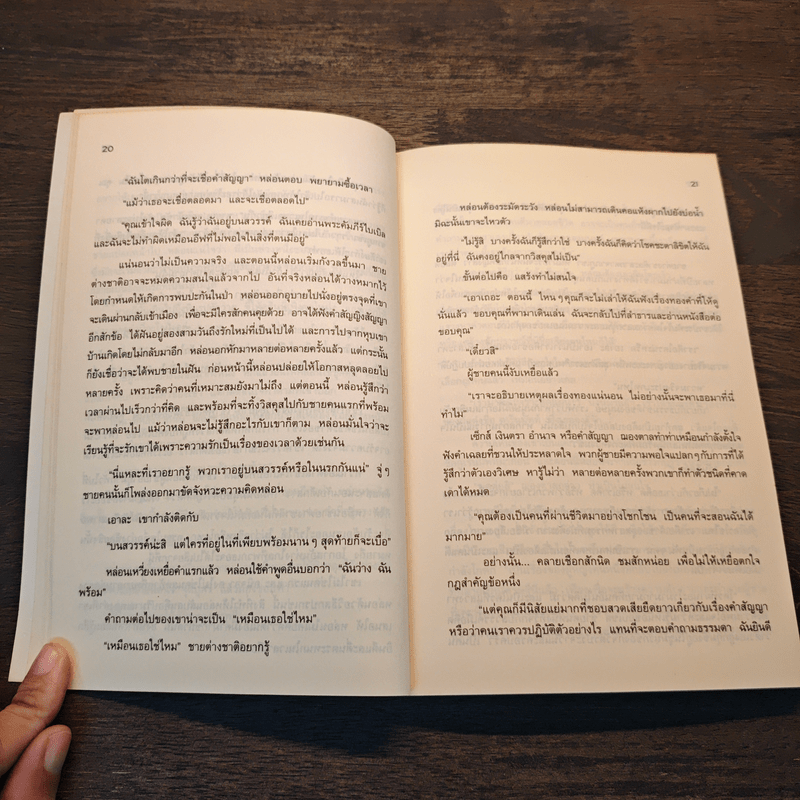 20
“ฉันโตเกินกว่าที่จะเชื่อคำสัญญา” หล่อนตอบ พยายามซื้อเวลา
“แม้ว่าเธอจะเชื่อตลอดมา และจะเชื่อตลอดไป”
“คุณเข้าใจผิด ฉันรู้ว่าฉันอยู่บนสวรรค์ ฉันเคยอ่านพระคัมภีร์ไบเบิล
และฉันจะไม่ทำผิดเหมือนอีฟที่ไม่พอใจในสิ่งที่ตนมีอยู่”
แน่นอนว่าไม่เป็นความจริง และตอนนี้หล่อนเริ่มกังวลขึ้นมา ชาย
ต่างชาติอาจจะหมดความสนใจแล้วจากไป อันที่จริงหล่อนได้วางหมากไว้
โดยกำหนดให้เกิดการพบปะกันในป่า หล่อนออกอุบายไปนั่งอยู่ตรงจุดที่เขา
จะเดินผ่านกลับเข้าเมือง เพื่อจะมีใครสักคนคุยด้วย อาจได้ฟังคำสัญญิงสัญญา
อีกสักข้อ ได้ฝันอยู่สองสามวันถึงรักใหม่ที่เป็นไปได้ และการไปจากหุบเขา
บ้านเกิดโดยไม่กลับมาอีก หล่อนอกหักมาหลายต่อหลายครั้งแล้ว แต่กระนั้น
ก็ยังเชื่อว่าจะได้พบชายในฝัน ก่อนหน้านี้หล่อนปล่อยให้โอกาสหลุดลอยไป
หลายครั้ง เพราะคิดว่าคนที่เหมาะสมยังมาไม่ถึง แต่ตอนนี้ หล่อนรู้สึกว่า
เวลาผ่านไปเร็วกว่าที่คิด และพร้อมที่จะทิ้งวิสคุสไปกับชายคนแรกที่พร้อม
จะพาหล่อนไป แม้ว่าหล่อนจะไม่รู้สึกอะไรกับเขาก็ตาม หล่อนมั่นใจว่าจะ
เรียนรู้ที่จะรักเขาได้เพราะความรักเป็นเรื่องของเวลาด้วยเช่นกัน
“นี่แหละที่เราอยากรู้ พวกเราอยู่บนสวรรค์หรือในนรกกันแน่” จู่ๆ
ชายคนนั้นก็โพล่งออกมาขัดจังหวะความคิดหล่อน
เอาละ เขากำลังติดกับ
“บนสวรรค์น่ะสิ แต่ใครที่อยู่ในที่เพียบพร้อมนานๆ สุดท้ายก็จะเบื่อ”
หล่อนเหวี่ยงเหยื่อคำแรกแล้ว หล่อนใช้คำพูดอื่นบอกว่า “ฉันว่าง ฉัน
พร้อม”
คำถามต่อไปของเขาน่าจะเป็น “เหมือนเธอใช่ไหม”
“เหมือนเธอใช่ไหม” ชายต่างชาติอยากรู้
21
หล่อนต้องระมัดระวัง หล่อนไม่สามารถเดินคอแห้งมากไปยังบ่อน้ำ
มิฉะนั้นเขาจะไหวตัว
“ไม่รู้สิ บางครั้งฉันก็รู้สึกว่าใช่ บางครั้งฉันก็คิดว่าโชคชะตาลิขิตให้ฉัน
อยู่ที่นี่ ฉันคงอยู่ไกลจากวิสคุสไม่เป็น”
ขั้นต่อไปคือ แสร้งทำไม่สนใจ
“เอาเถอะ ตอนนี้ ไหนๆ คุณก็จะไม่เล่าให้ฉันฟังเรื่องทองคำที่ให้ดู
นั่นแล้ว ขอบคุณที่พามาเดินเล่น ฉันจะกลับไปที่ลำธารและอ่านหนังสือต่อ
ขอบคุณ”
“เดี๋ยวสิ”
ผู้ชายคนนี้งับเหยื่อแล้ว
“เราจะอธิบายเหตุผลเรื่องทองแน่นอน ไม่อย่างนั้นจะพาเธอมาที่นี่
ทำไม”
เซ็กส์ เงินตรา อำนาจ หรือคำสัญญา ฌองตาลทำท่าเหมือนกำลังตั้งใจ
ฟังคำเฉลยที่ชวนให้ประหลาดใจ พวกผู้ชายมีความพอใจแปลกๆ กับการที่ได้
รู้สึกว่าตัวเองวิเศษ หารู้ไม่ว่า หลายต่อหลายครั้งพวกเขาก็ทำตัวชนิดที่คาด
เดาได้หมด
“คุณต้องเป็นคนที่ผ่านชีวิตมาอย่างโชกโชน เป็นคนที่จะสอนฉันได้
มากมาย”
อย่างนั้น... คลายเชือกสักนิด ชมสักหน่อย เพื่อไม่ให้เหยื่อตกใจ
กฎสำคัญข้อหนึ่ง
“แต่คุณก็มีนิสัยแย่มากที่ชอบสวดเสียยืดยาวเกี่ยวกับเรื่องคำสัญญา
หรือว่าคนเราควรปฏิบัติตัวอย่างไร แทนที่จะตอบคำถามธรรมดา ฉันยินดี